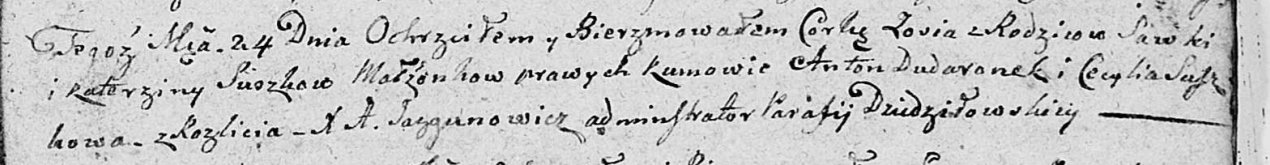 Tegoż Mca. 24 Dnia Ochrzciłem y Bierzmowałem Corkę Zosia z Rodzicow Sawki
i Katerziny Suszkow Małżonkow prawych Kumowie Anton Dudaronek i Cecylia Susz
kowa - z Rozlicia - X A. Jazgunowicz administrator Parafij Dziedziłowskiey